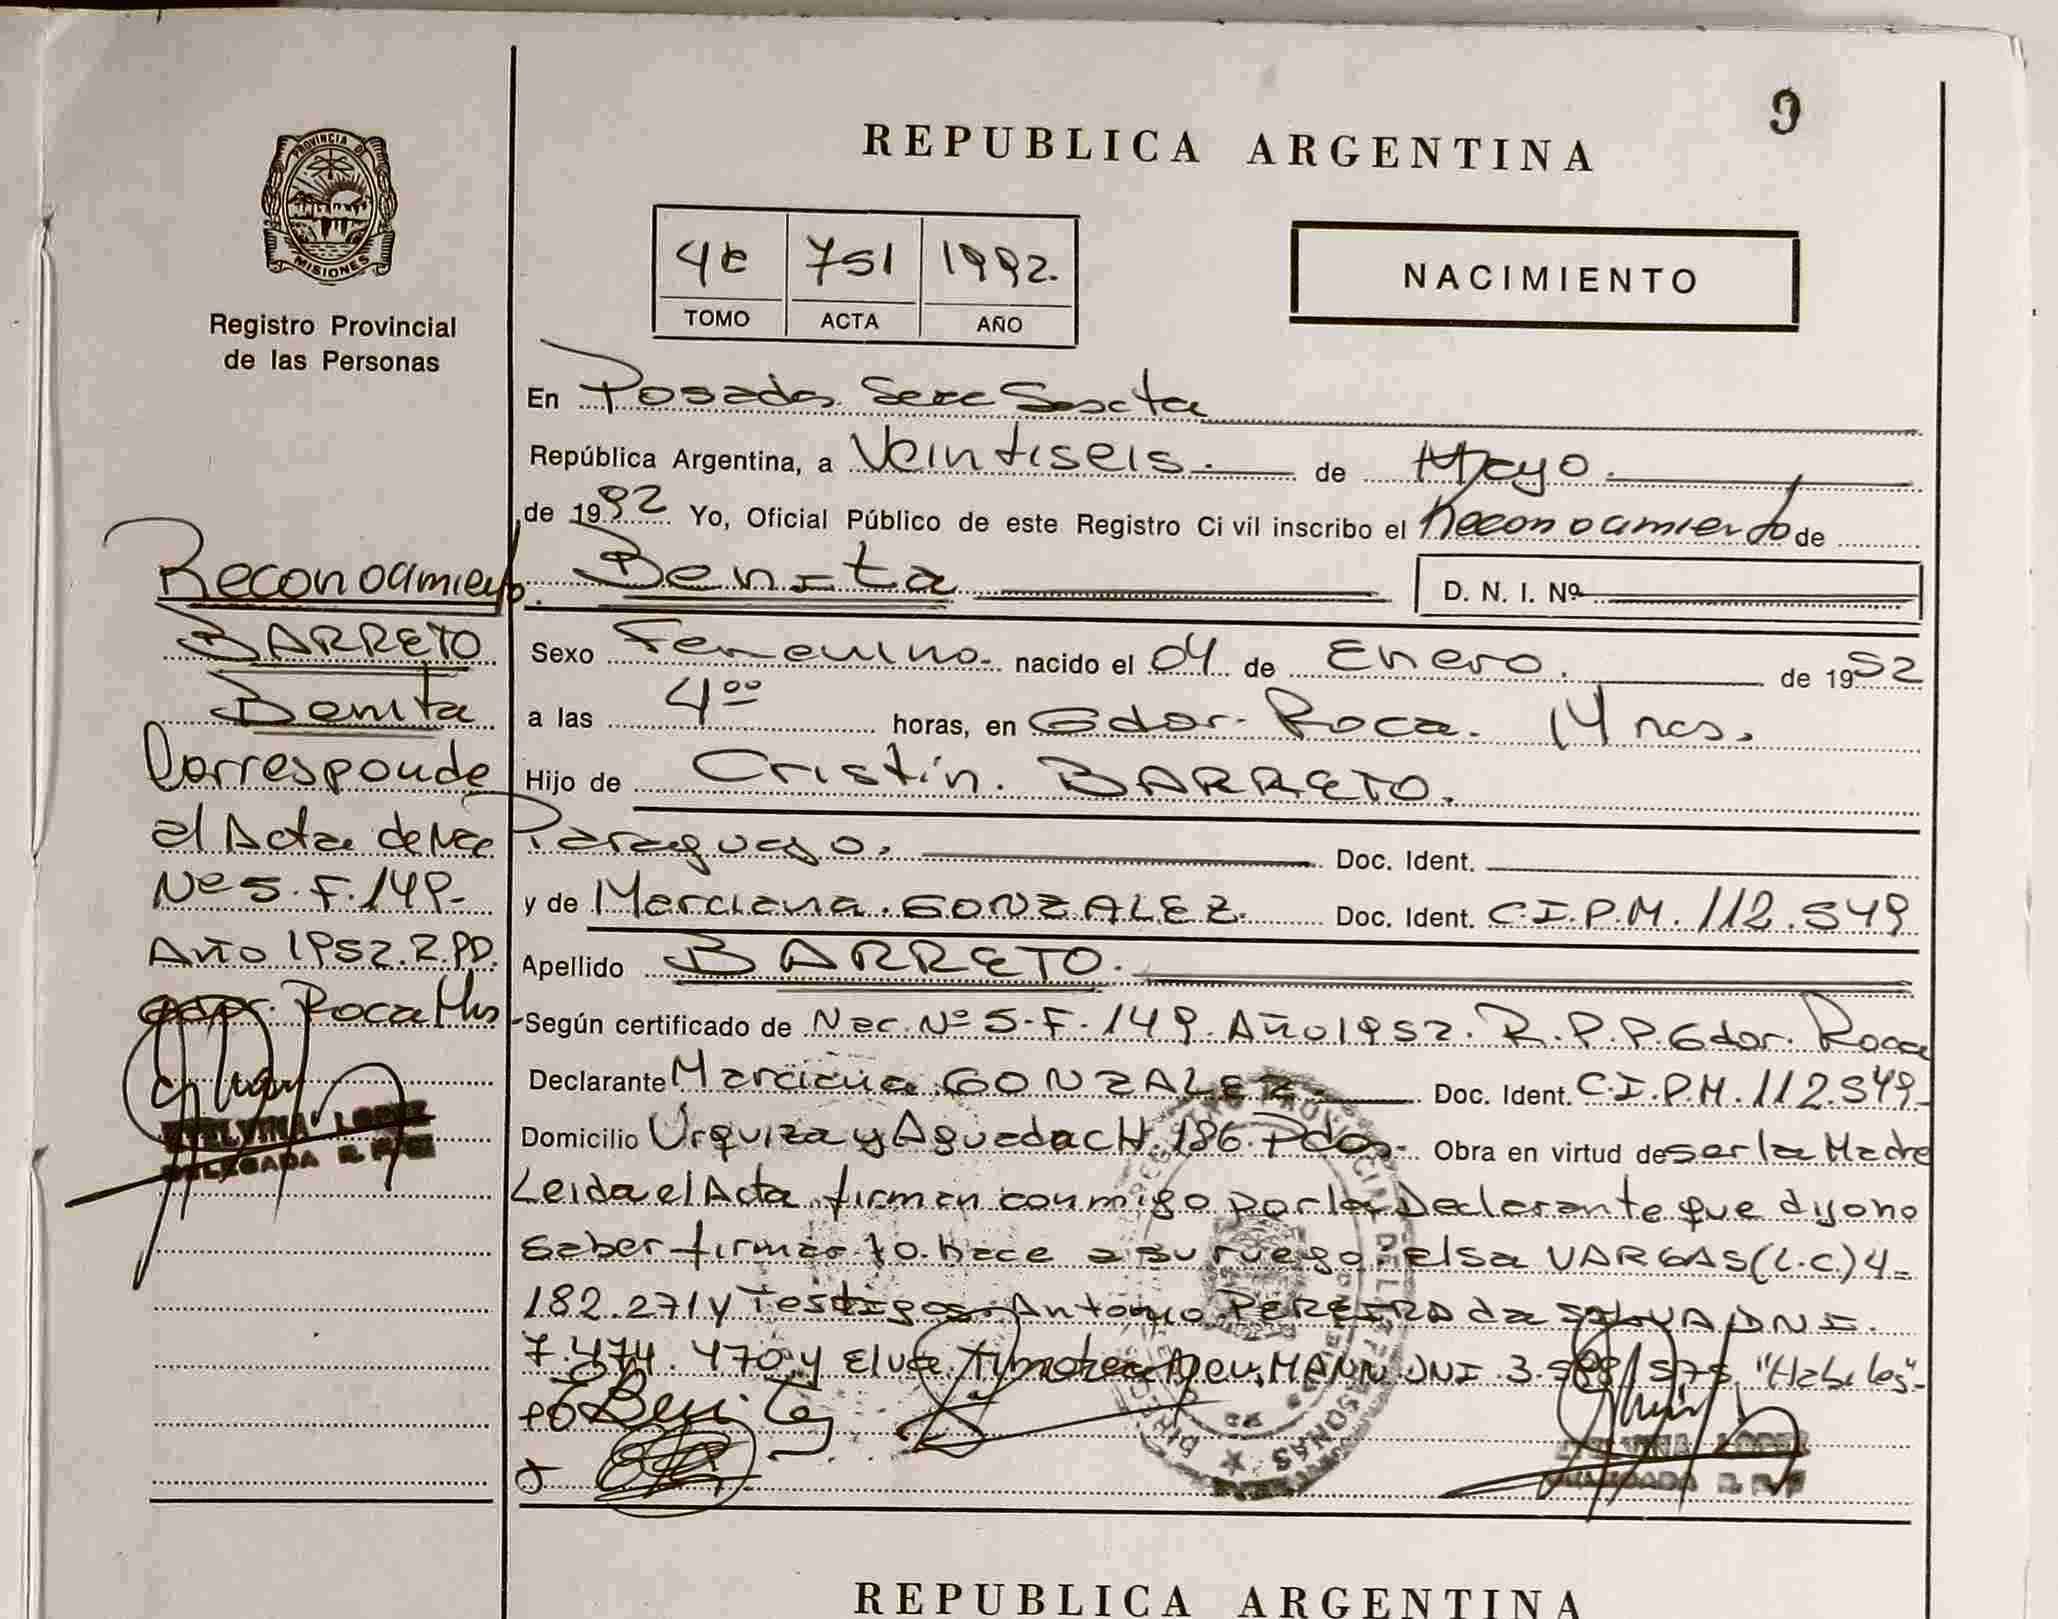 9
REPUBLICA ARGENTINA
PROVINCIA DE
MISIONES
Registro Provincial
de las Personas
4t 751 1992.
TOMO ACTA AÑO
NACIMIENTO
En Posadas
República Argentina, a Veintiseis. de Mayo.
de 1992 Yo, Oficial Público de este Registro Civil inscribo el Reconocimiento de
Benita D. N. I. Nº
Sexo Femenino. nacido el 04 de Enero. de 1952
a las 4ºº horas, en Gdor. Roca. 14 ncs.
Hijo de Cristín. BARRETO.
Paraguayo. Doc. Ident.
y de Marciana. GONZALEZ. Doc. Ident. C.I.P.M. 112.549
Apellido BARRETO.
Según certificado de Nac. Nº 5-F. 149. Año 1952. R.P.P. Gdor. Roca
Declarante Marciana GONZALEZ Doc. Ident. C.I.P.M. 112.549-
Domicilio Urquiza y Aguado CH. 186. Pdas- Obra en virtud de ser la Madre
Leida el Acta firman conmigo por la Declarante que dijo no
saber firmar lo hace a su ruego: elsa VARGAS (L.C.) 4-
182.271 y Testigos Antonio PEREIRA da SILVA DNI.
7.474.470 y MANN DNI 3. "Habiles"-
Reconocimiento
BARRETO
Benita
Corresponde
al Acta de Nac
Nº 5. F. 149-
Año 1952. R.PP.
gdor. Roca Mns
LOPEZ
DELEGADA R. P. P.
Benitez
LOPEZ
DELEGADA R. P. P.
REPUBLICA ARGENTINA